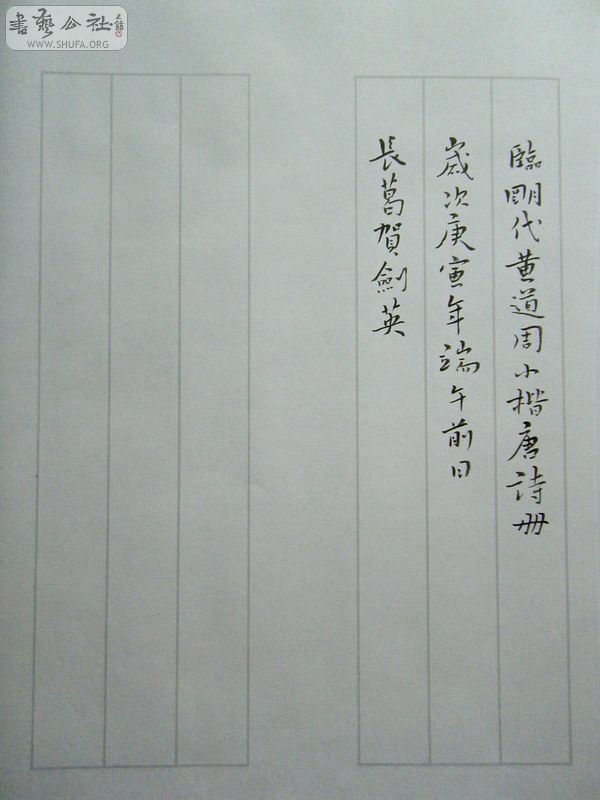 臨明代黄道周小楷唐詩册
歲次庚寅年端午前日
長葛賀劍英
書藝公社
WWW.SHUFA.ORG